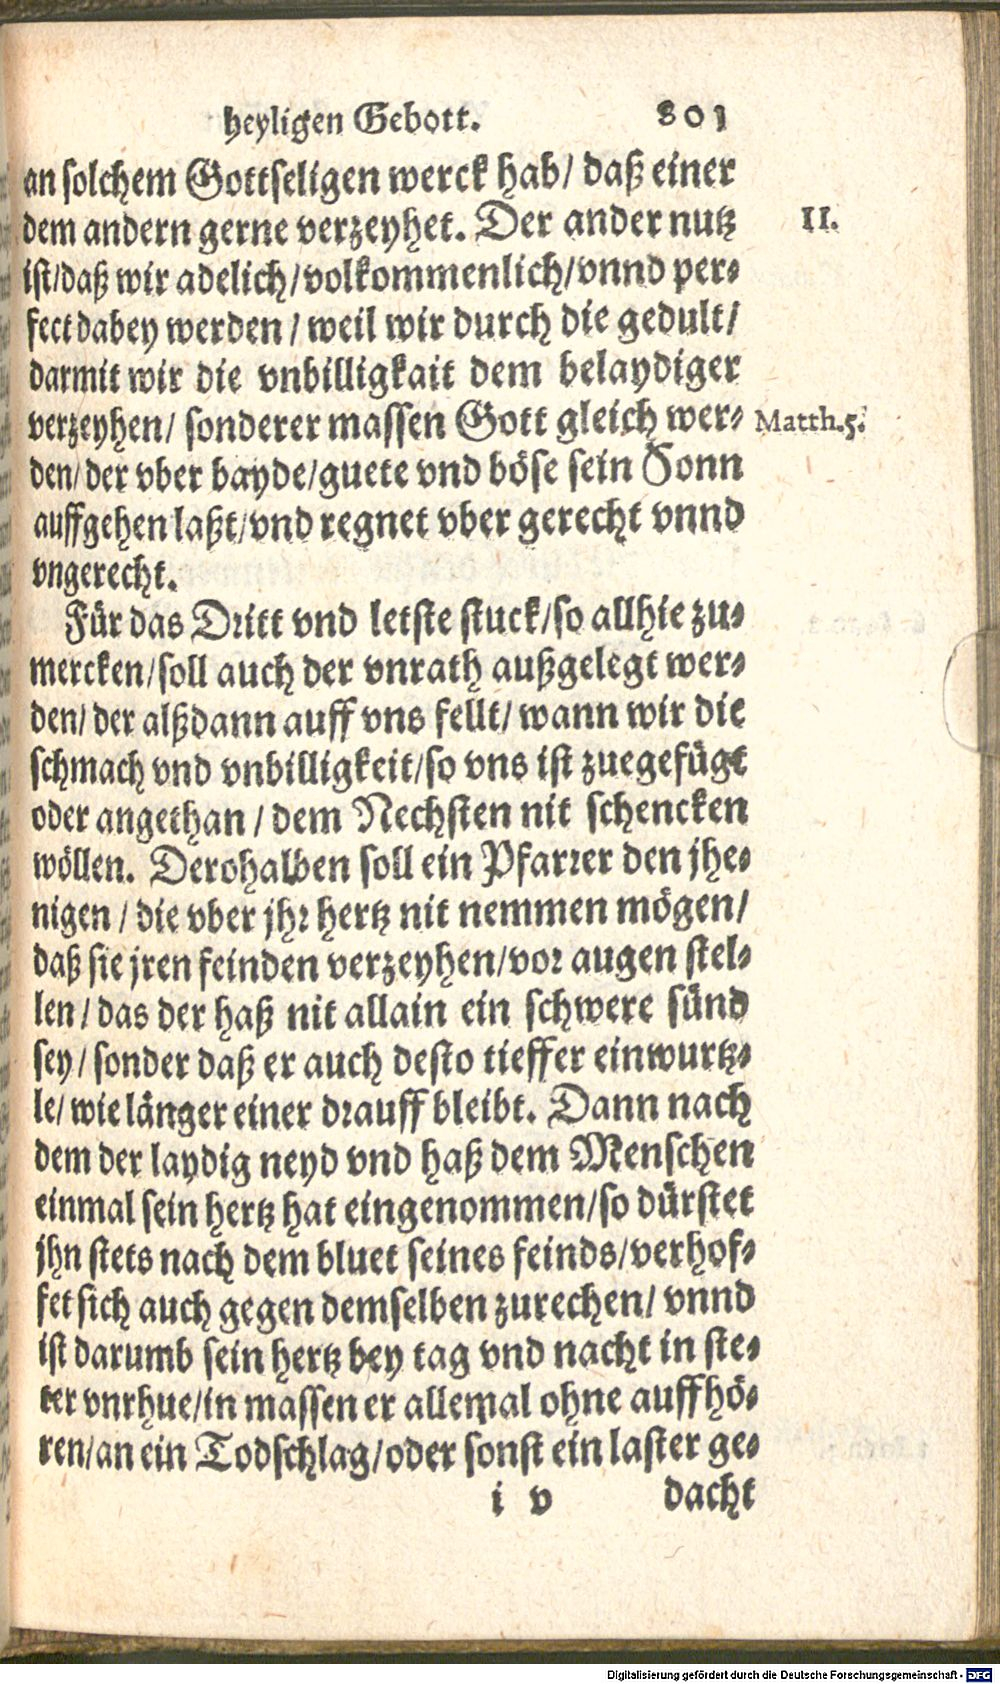 heyligen Gebott. 801
an solchem Gottseligen werck hab/ daß einer
dem andern gerne verzeyhet. Der ander nutz
II.
ist/daß wir adelich/volkommenlich/vnnd per-
fect dabey werden/ weil wir durch die gedult/
darmit wir die vnbilligkait dem belaydiger
verzeyhen/ sonderer massen Gott gleich wer-
Matth.5.
den/ der vber bayde/guete vnd böse sein Sonn
auffgehen laßt/vnd regnet vber gerecht vnnd
vngerecht.
Für das Dritt vnd letste stuck/so allhie zu-
mercken/soll auch der vnrath außgelegt wer-
den/ der alßdann auff vns fellt/ wann wir die
schmach vnd vnbilligkeit/so vns ist zuegefügt
oder angethan/ dem Nechsten nit schencken
wöllen. Derohalben soll ein Pfarrer den jhe-
nigen/ die vber jhr hertz nit nemmen mögen/
daß sie jren feinden verzeyhen/vor augen stel-
len/ das der haß nit allain ein schwere sünd
sey/ sonder daß er auch desto tieffer einwurtz-
le/ wie länger einer drauff bleibt. Dann nach
dem der laydig neyd vnd haß dem Menschen
einmal sein hertz hat eingenommen/so dürstet
jhn stets nach dem bluet seines feinds/verhof-
fet sich auch gegen demselben zurechen/ vnnd
ist darumb sein hertz bey tag vnd nacht in ste-
ter vnrhue/in massen er allemal ohne auffhö-
ren/an ein Todschlag/oder sonst ein laster ge-
i v dacht
Digitalisierung gefördert durch die Deutsche Forschungsgemeinschaft - DFG